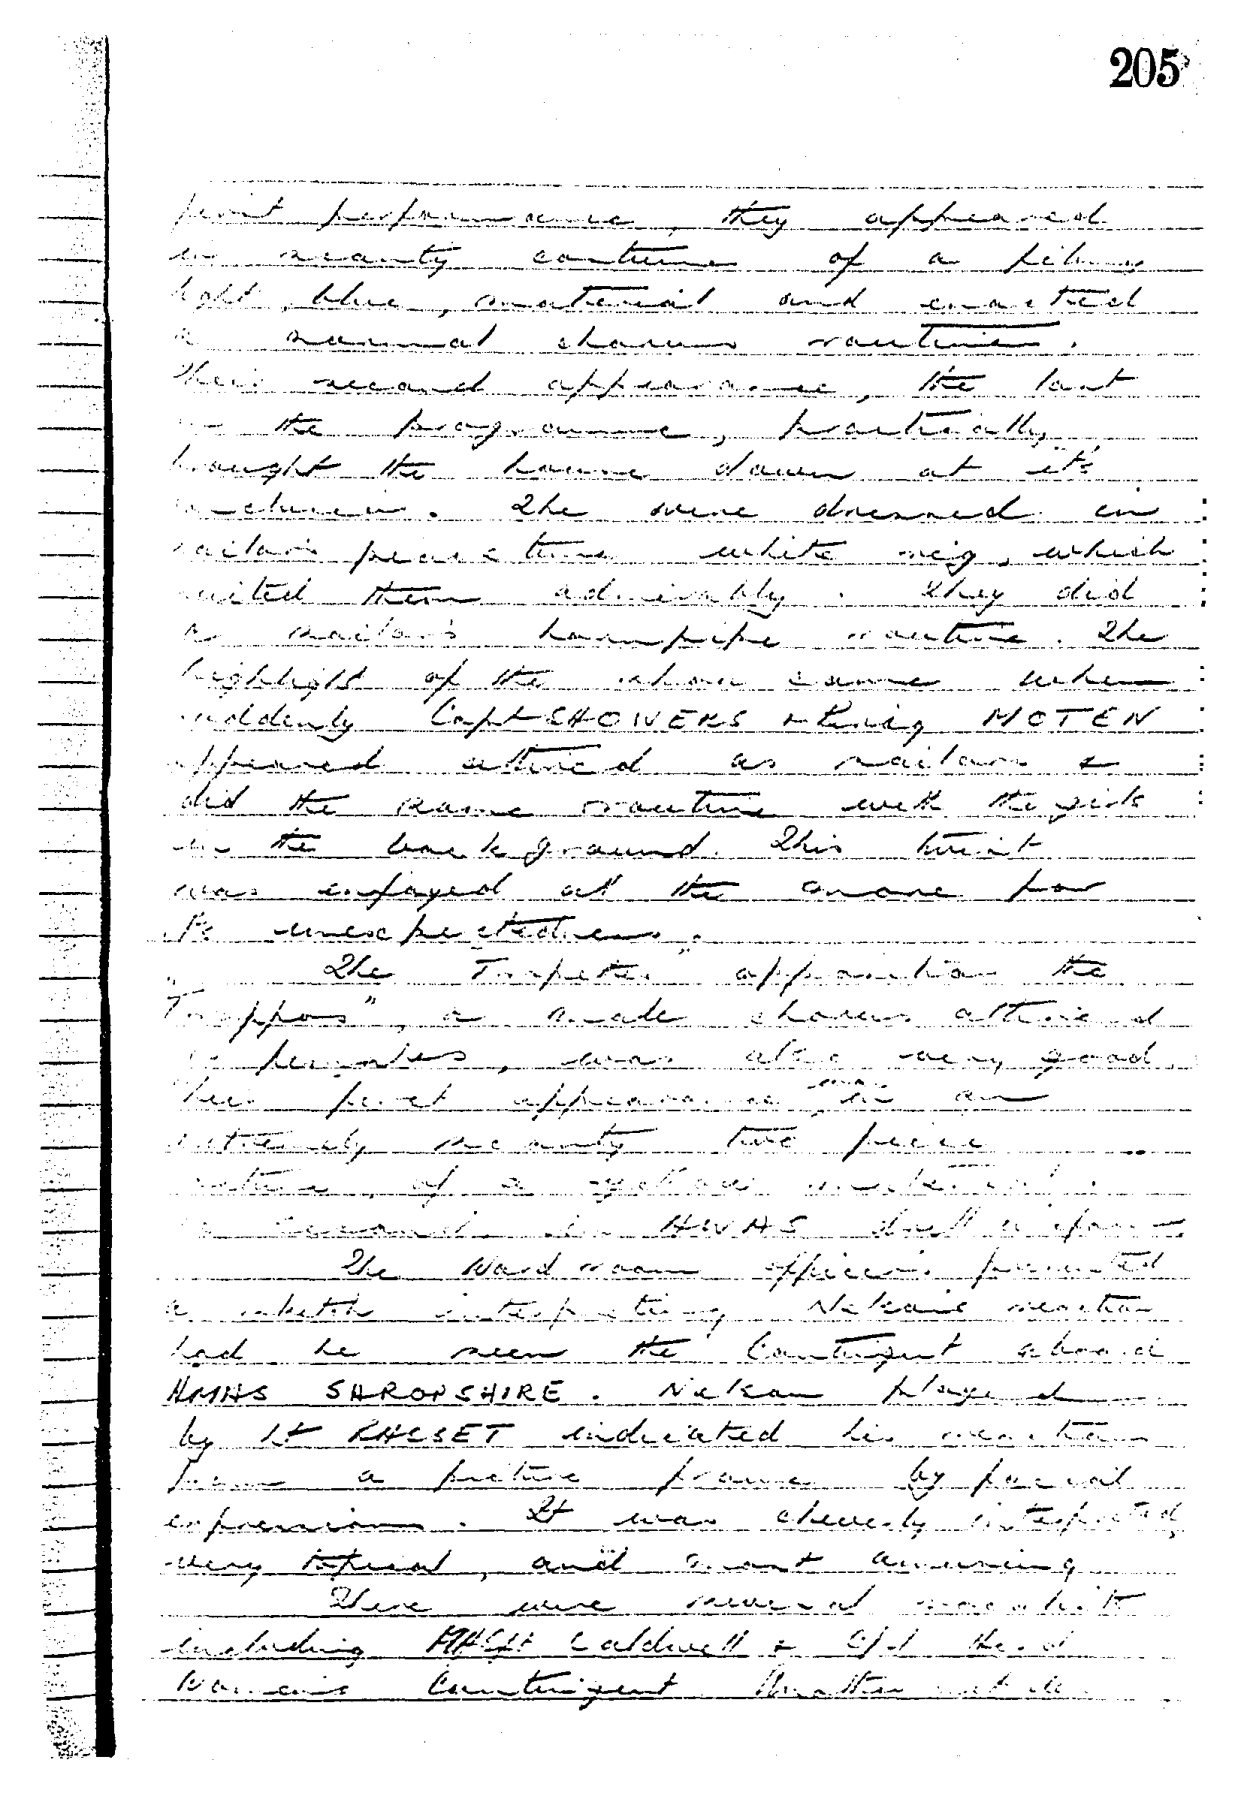 205
first performance, they appeared
in scanty costume of a filmy
light, blue, material and enacted
a normal chorus routine.
Their second appearance, the last
on the programme, practically,
brought the house down at its
The were dressed in
sailors peacetime white rig, which
suited them admirably. They did
a sailor's hornpipe routine. The
highlight of the show came when
suddenly Capt SHOWERS & MOTEN
appeared attired as sailors &
did the same routine with the girls
in the background. This twist
was enjoyed all the more for
its unexpectedness.
The " opposition the
", a male chorus attired
as females, was also very good.
Their first appearance was in an
extremely scanty two piece
costume, of a yellow material.
second in drill
The Wardroom officers presented
a sketch interpreting Nelsons reaction
had he seen the Contingent aboard
HMAS SHROPSHIRE. Nelson played
by Lt indicated his reaction
from a picture frame by facial
expressions. It was cleverly interpreted,
very typical, and most amusing
There were several
including Caldwell &
Contingent. Another